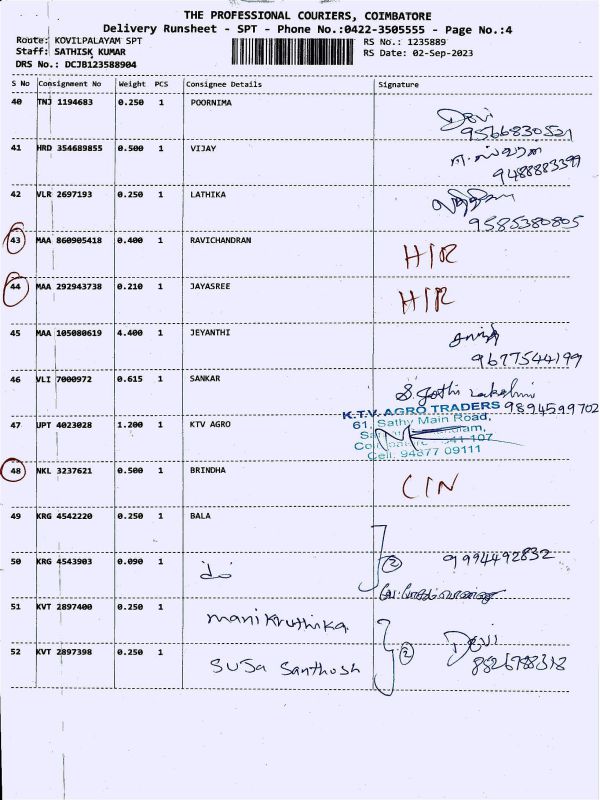 THE PROFESSIONAL COURIERS, COIMBATORE
Delivery Runsheet - SPT - Phone No.:0422-3505555 - Page No.:4
Route: KOVILPALAYAM SPT
RS No.: 1235889
Staff: SATHISK KUMAR
RS Date: 02-Sep-2023
DRS No.: DCJB123588904
S No Consignment No Weight PCS Consignee Details Signature
40 TNJ 1194683 0.250 1 POORNIMA Devi
9566830521
41 HRD 354689855 0.500 1 VIJAY
9488883399
42 VLR 2697193 0.250 1 LATHIKA
9585380805
43 MAA 860905418 0.400 1 RAVICHANDRAN H/R
44 MAA 292943738 0.210 1 JAYASREE H/R
45 MAA 105080619 4.400 1 JEYANTHI
9677544199
46 VLI 7000972 0.615 1 SANKAR S. Jothi Lakshmi
9894599702
K.T.V. AGRO TRADERS
61, Sathy Main Road,
47 UPT 4023028 1.200 1 KTV AGRO
641 107
Cell: 94877 09111
48 NKL 3237621 0.500 1 BRINDHA C/N
49 KRG 4542220 0.250 1 BALA
50 KRG 4543903 0.090 1 do 2 9994492832
51 KVT 2897400 0.250 1 manikruthika
52 KVT 2897398 0.250 1 SUSa Santhosh 2 Devi
8826788318